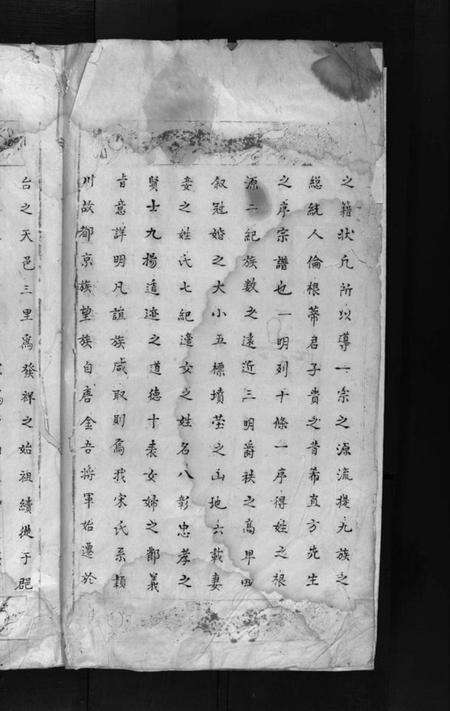 之籍狀凡所以導一宗之源流提九族之
總統人倫根蒂君子貴之昔希直方先生
之序宗譜也一明列十條一序得姓之根
源二紀族數之遠近三明爵秩之高卑四
叙冠婚之大小五標墳塋之山地六載妻
妾之姓氏七紀逢女之姓名八彰忠孝之
賢士九揚遺迹之道德十表女婦之鄰義
旨意詳明凡誼族咸取則焉我宋氏系穎
川故都京族望族自唐金吾將軍始遷於
台之天邑三里為發祥之始祖續從于